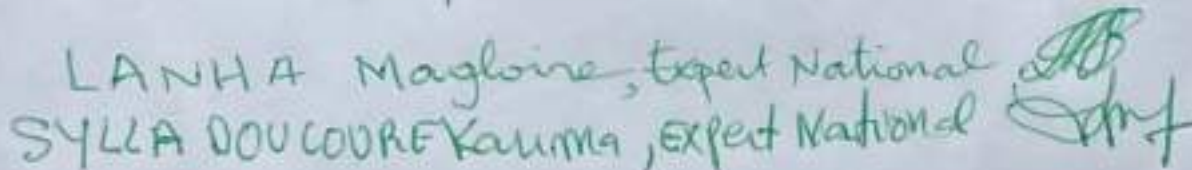 LANHA Magloire, Expert National
SYLLA DOUCOURE Kauma, Expert National